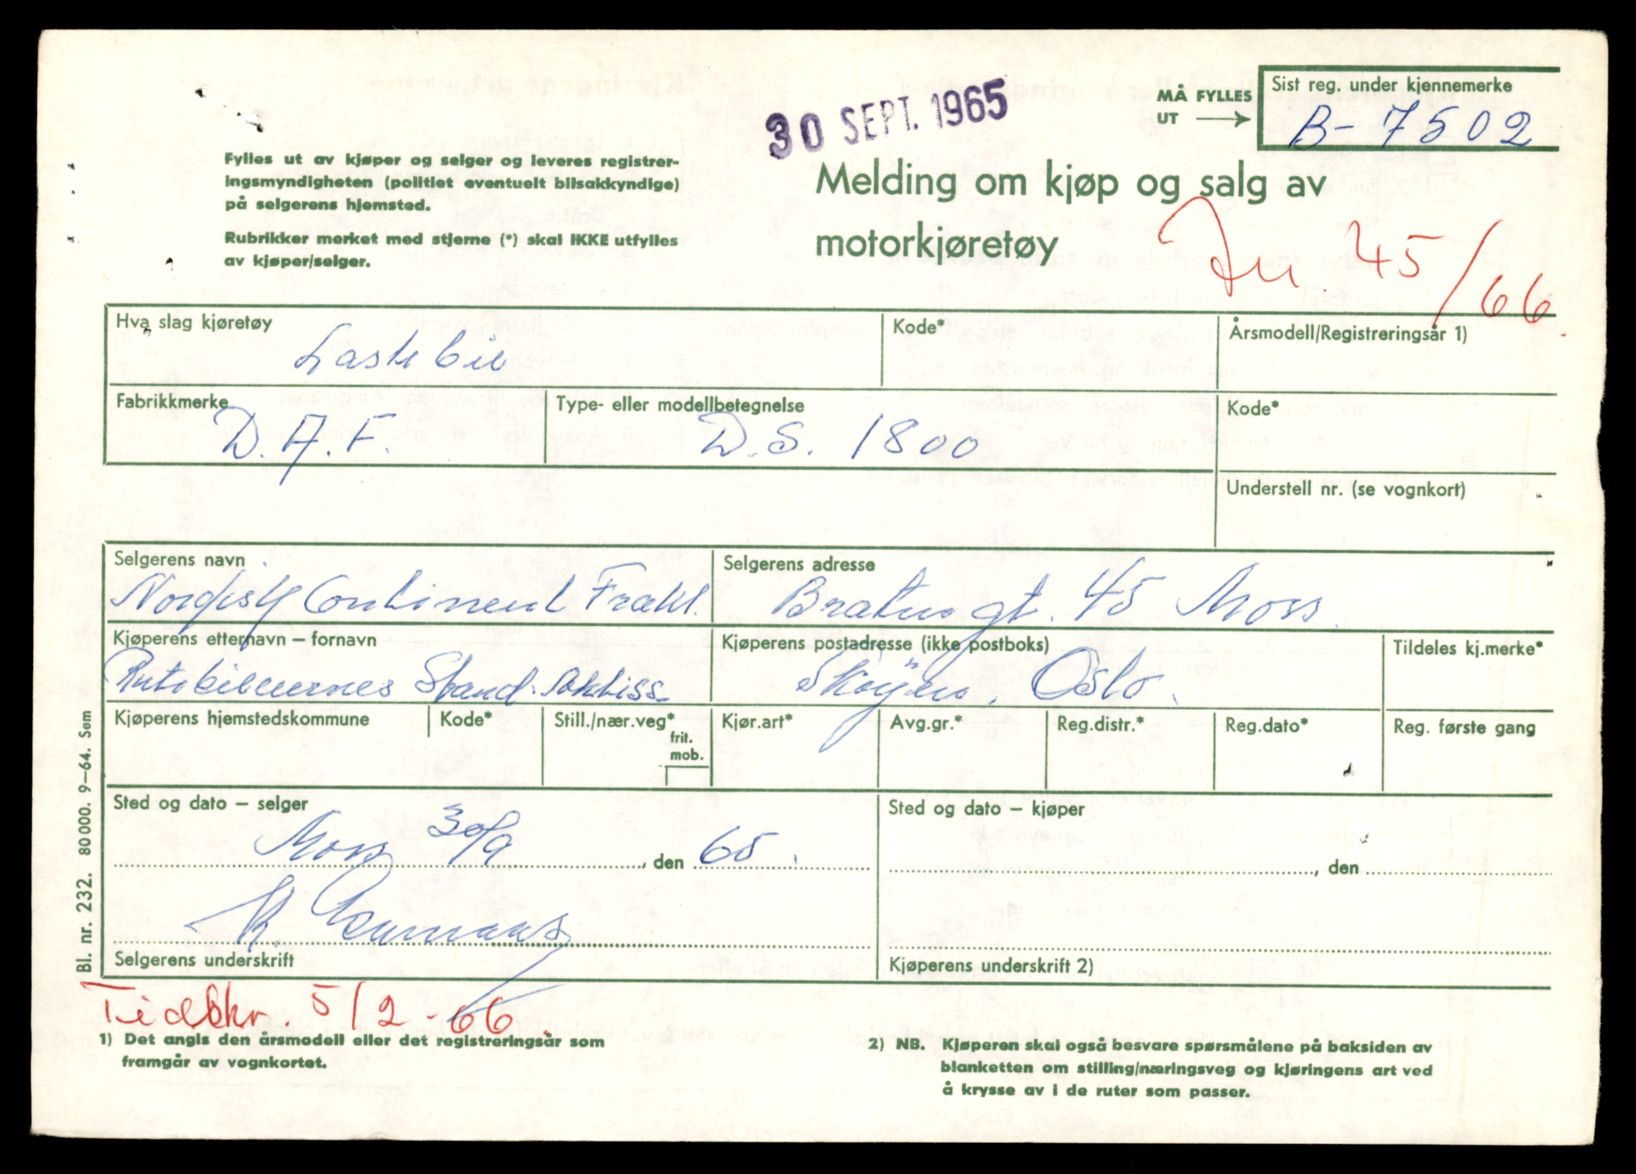 30 SEPT. 1965
MÅ FYLLES
UT
Sist reg. under kjennemerke
B-7502
Fylles ut av kjøper og selger og leveres registrer-
ingsmyndigheten (politiet eventuelt bilsakkyndige)
på selgerens hjemsted.
Rubrikker merket med stjerne (*) skal IKKE utfylles
av kjøper/selger.
Melding om kjøp og salg av
motorkjøretøy
45/66.
Hva slag kjøretøy
Lastebil
Kode*
Årsmodell/Registreringsår 1)
Fabrikkmerke
D.A.F.
Type- eller modellbetegnelse
D.S. 1800
Kode*
Understell nr. (se vognkort)
Selgerens navn
Nordisk Continent Frakt.
Selgerens adresse
gt. 45 Moss.
Kjøperens etternavn – fornavn
Rutebileiernes Stand.
Kjøperens postadresse (ikke postboks)
Skøyen. Oslo.
Tildeles kj.merke*
Kjøperens hjemstedskommune
Kode*
Still./nær.veg*
frit.
mob.
Kjør.art*
Avg.gr.*
Reg.distr.*
Reg.dato*
Reg. første gang
Sted og dato – selger
Moss 30/9, den 65.
Sted og dato – kjøper
, den
Selgerens underskrift
Kjøperens underskrift 2)
Bl. nr. 232. 80 000. 9–64. Sem
5/2-66.
1) Det angis den årsmodell eller det registreringsår som
framgår av vognkortet.
2) NB. Kjøperen skal også besvare spørsmålene på baksiden av
blanketten om stilling/næringsveg og kjøringens art ved
å krysse av i de ruter som passer.